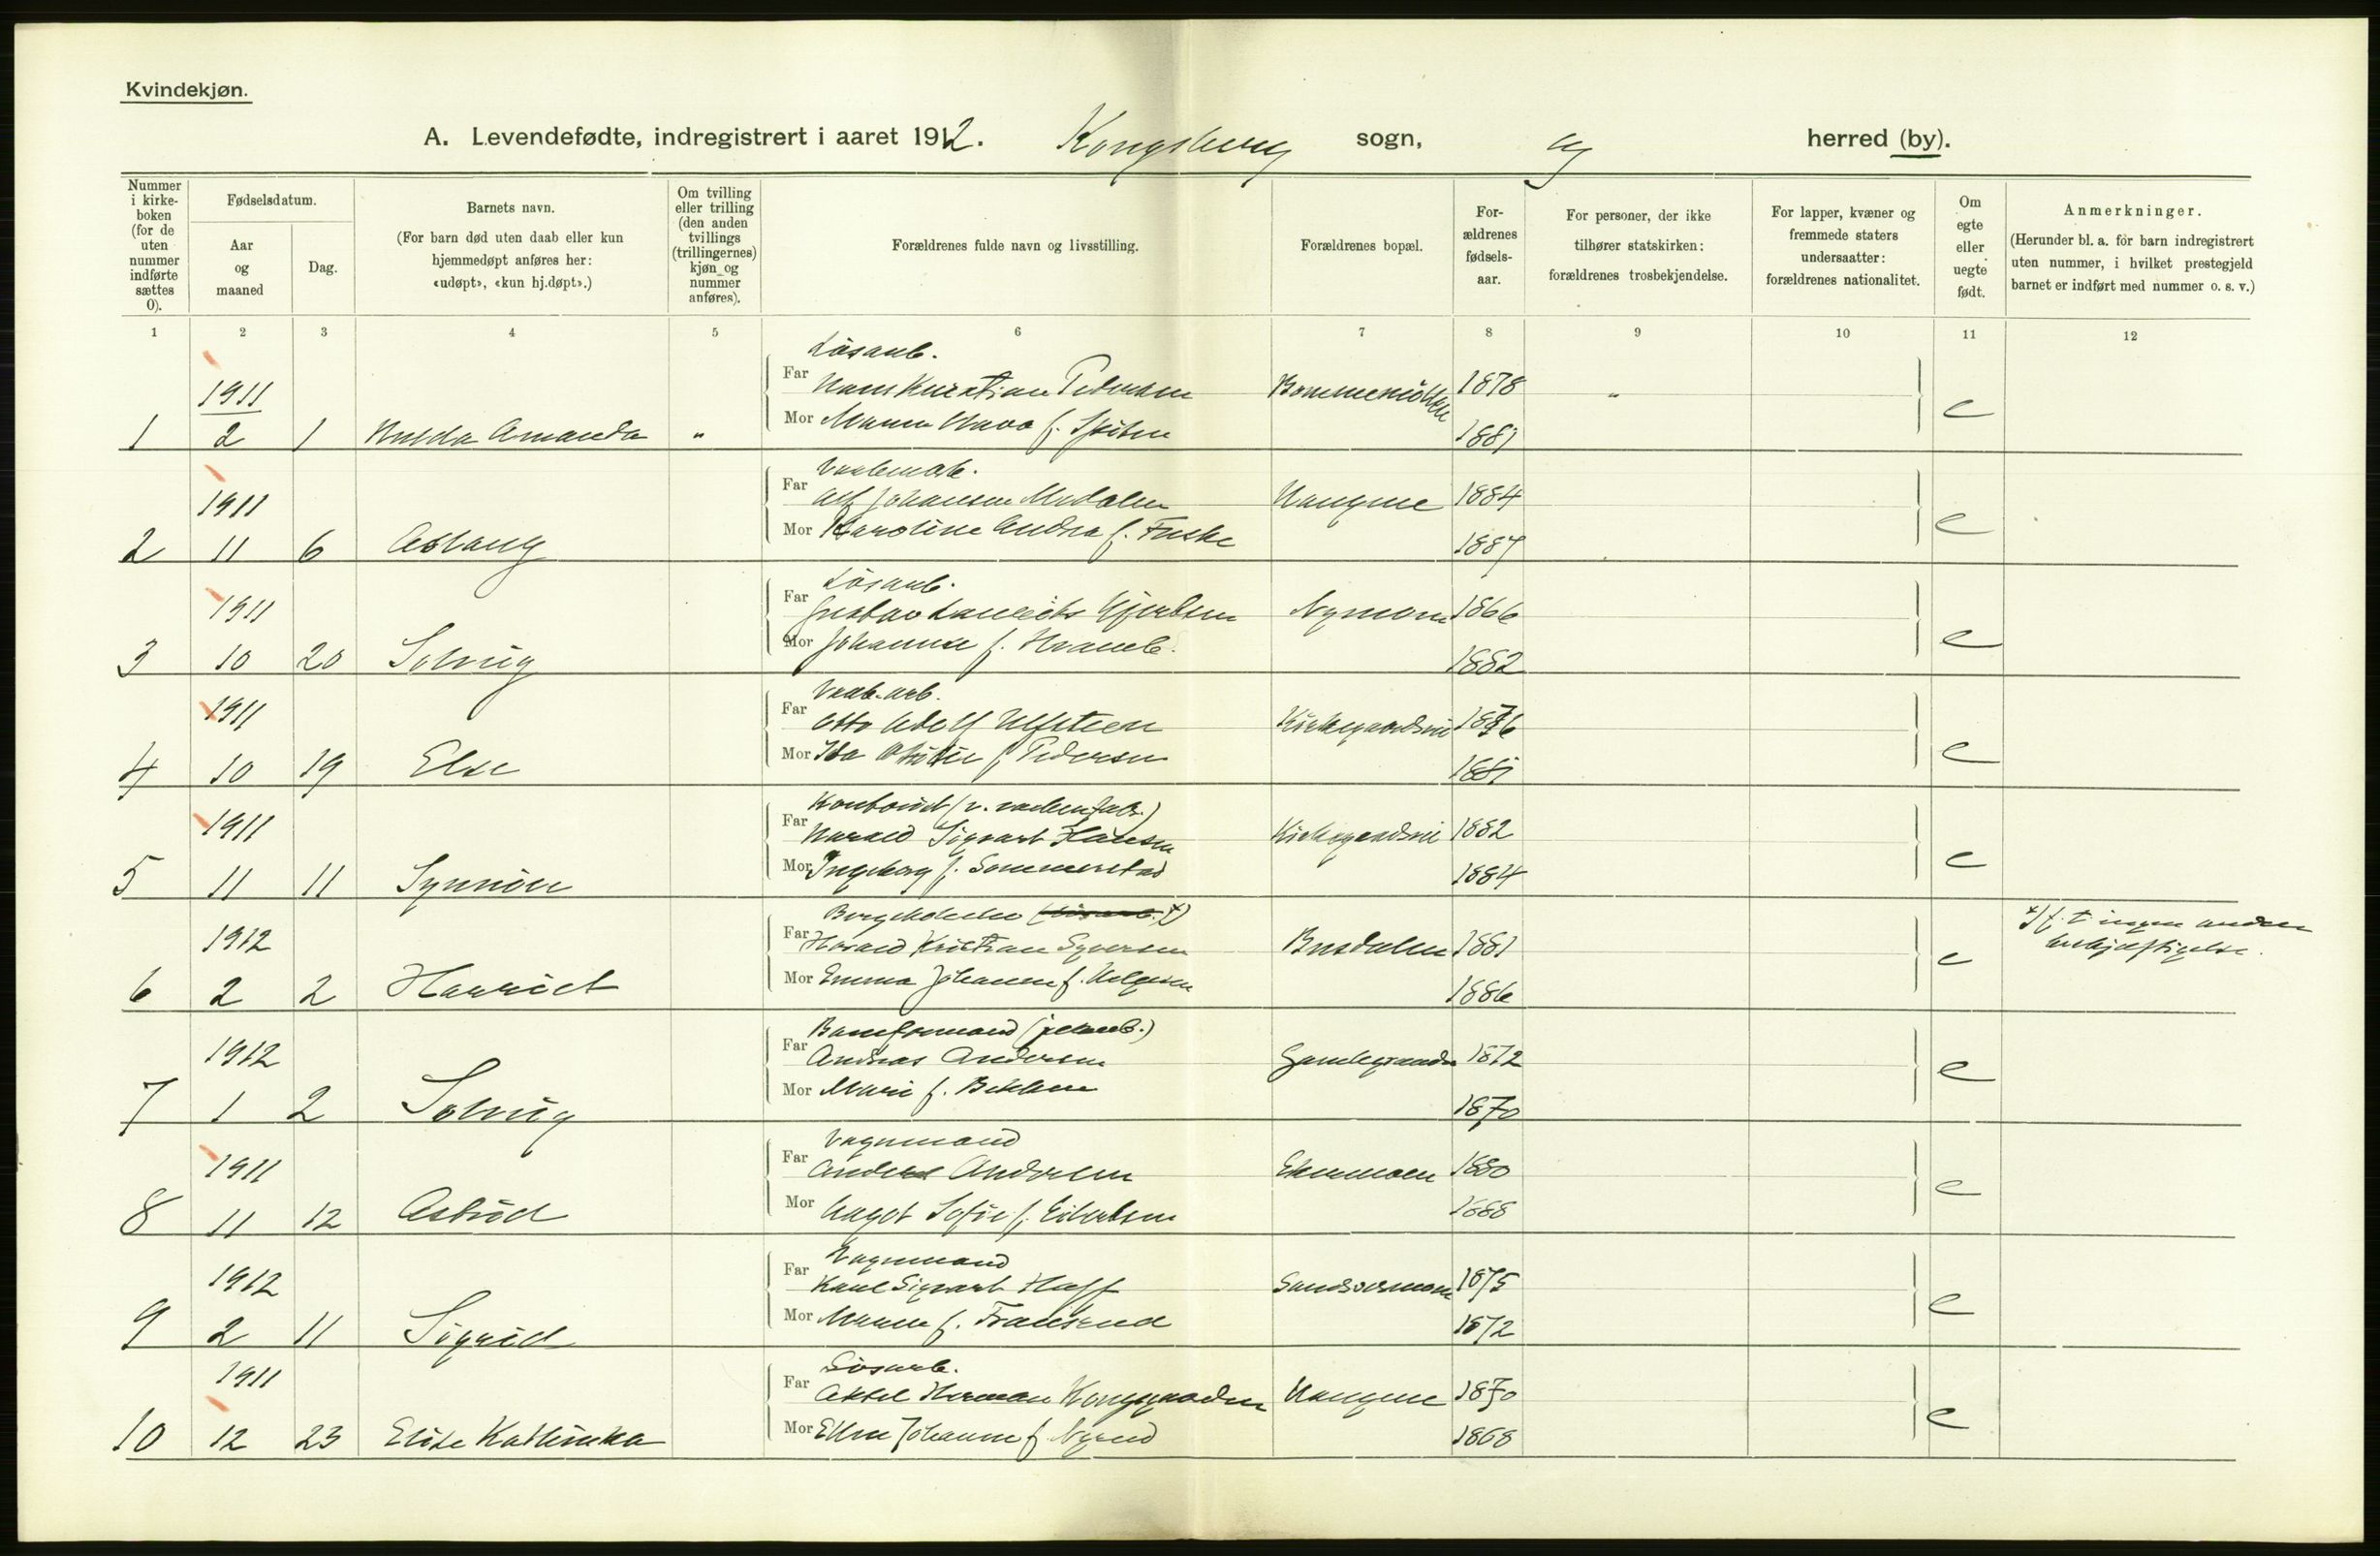 Kvindekjøn.
A. Levendefødte, indregistrert i aaret 1912. Kongsberg sogn, og herred (by).
Nummer i kirke-boken (for de uten nummer indførte sættes 0).
Fødselsdatum.
Aar og maaned
Dag.
Barnets navn.
(For barn død uten daab eller kun hjemmedøpt anføres her: «udøpt», «kun hj.døpt».)
Om tvilling eller trilling (den anden tvillings (trillingernes) kjøn og nummer anføres).
Forældrenes fulde navn og livsstilling.
Forældrenes bopæl.
For-ældrenes fødsels-aar.
For personer, der ikke tilhører statskirken: forældrenes trosbekjendelse.
For lapper, kvæner og fremmede staters undersaatter: forældrenes nationalitet.
Om egte eller uegte født.
Anmerkninger.
(Herunder bl. a. for barn indregistrert uten nummer, i hvilket prestegjeld barnet er indført med nummer o. s. v.)
1 2 3 4 5 6 7 8 9 10 11 12
Løsarb.
1911 Far Hans Kristian Pedersen 1878 "
1 2 1 Hulda Amanda " Mor Maren f. 1881 e
1911 Far Alf Johansen Medalen Hangene 1884
2 11 6 Aslaug Mor Karoline Andrea f. Fuske 1887 e
Løsarb.
1911 Far Gustav Laurits Nymoen 1866
3 10 20 Solveig Mor Johanne f. 1882 e
Vaab. arb.
1911 Far Otto Adolf Ulfsteen Kirkegaardsvei 1876
4 10 19 Else Mor Ida f. Pedersen 1881 e
1911 Far Harald Sigvart Hansen Kirkegaardsvei 1882
5 11 11 Synnøve Mor Ingeborg f. Sommerstad 1884 e
*) f. t. ingen anden beskjæftigelse.
1912 Far Harald Kristian Syversen Busdalen 1881
6 2 2 Harriet Mor Emma Johanne f. Helgesen 1886 e
Baneformand
1912 Far Andreas Andersen 1872
7 1 2 Solveig Mor Marie f. 1870 e
Vognmand
1911 Far Anders Andersen 1880
8 11 12 Astrid Mor Aagot Sofie f. Eilertsen 1888 e
Vognmand
1912 Far Karl Sigvart Hoff Sandsværmoen 1875
9 2 11 Sigrid Mor Maren f. 1872 e
Løsarb.
1911 Far Aksel Herman Kongsgaarden Hangene 1870
10 12 23 Elise Kathinka Mor Ellen Johanne f. 1868 e